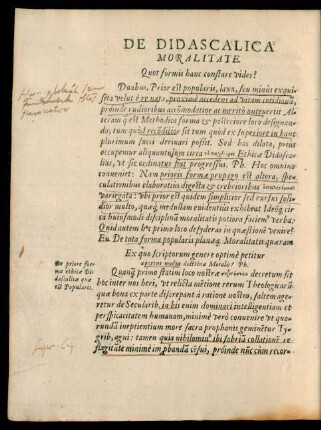 DE DIDASCALICA
MORALITATE.
Quot formis hanc constare vides?
Duabus. Prior est popularis, laxa, seu minus exqui-
sita velut è re nata, proxime accedens ad vitam cotidianã,
proinde rudioribus accõmodatior ac merito antevertit Al-
teram quæ est Methodica forma & posteriore loco designan-
da, tum quòd recõditior sit tum quòd ex superiore in hanc
plurimum succi derivari possit. Sed hac delata, prius
occupemur aliquantisper circa Ethicæ Didasca-
lias, ut sic ordinatus fiat progressus. Ph. Hoc omnino
convenit: Nam prioris formæ propago est altera, spe-
culationibus elaboratim digesta & crebrioribus
variegata: ubi prior est quidem simplicior sed rursus soli-
dior multo, quæq; medullam euidentius exhibeat Idròq; cir-
ca huiusmodi disciplinã moralitatis potiora faciem' verba:
Quid autem hoc primo loco desyderas in quæstionè venire?
Eu. De tota forma populari planaq; Moralitatis quæram.
Ex quo scriptorum genere optimè petitur
doctrina Moralis? Ph.
De priore for-
ma ethicæ Di-
dascaliæ quæ
est Popularis.
Quamq̃ primo statim loco nostræ decretum sit
hoc inter nos heri, ut relicta mẽtione rerum Theologicarũ
quæ bona ex parte discrepant à ratione nostra, saltem age-
retur de Secularib, in his enim dominari intelligentiam et
perspicacitatem humanam, minimè verò convenire ut quo-
rundã ineptientium more sacra prophanis geminẽtur Ty-
grib, agni: tamen quia nihilominus ibi sobriã collationẽ re-
flagitare minimè improbandã cẽsui, proinde nũc etim recor-